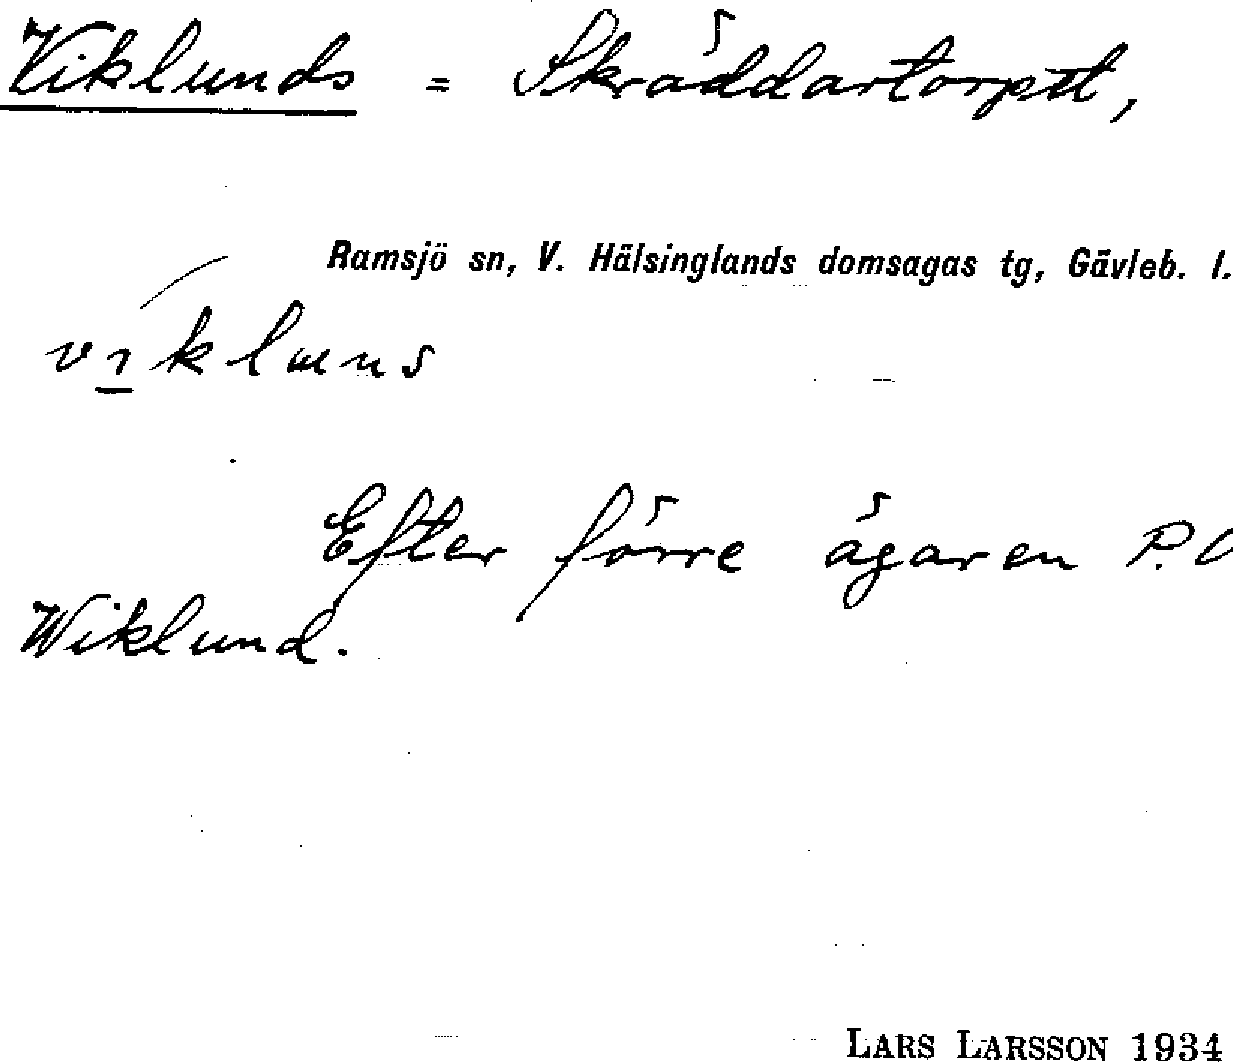 Viklunds = Skräddartorpet,
Ramsjö sn, V. Hälsinglands domsagas tg, Gävleb. l.
vikluns
Efter förre ägaren P.
Wiklund.
LARS LARSSON 1934